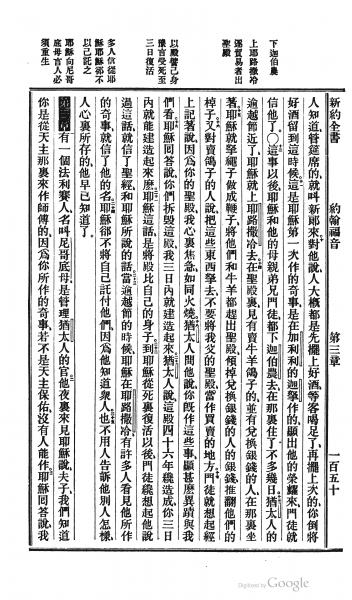 新約全書　約翰福音　第三章　一百五十
下迦伯農
上耶路撒冷
逐貿易者出
聖殿
以殿譬己身
豫言受死至
三日復活
多人信從耶
穌耶穌卻不
以己託之
耶穌向尼哥
底母言人必
須重生
人知道管筵席的就叫新郎來對他說人大槪都是先擺上好酒等客喝足了再擺上次的你倒將
好酒留到這時候這是耶穌第一次作的奇事是在加利利的迦拏作的顯出他的榮耀來門徒就
信他了〇這事以後耶穌和他的母親弟兄門徒都下迦伯農去在那裏住了不多幾日猶太人的
逾越節近了耶穌就上耶路撒冷去在聖殿裏見有賣牛羊鴿子的並有兌換銀錢的人在那裏坐
著耶穌就拏繩子做成鞭子將他們和牛羊都趕出聖殿傾掉兌換銀錢的人的銀錢推翻他們的
棹子又對賣鴿子的人說把這些東西拏去不要將我父的聖殿當作買賣的地方門徒就想起經
上記著說因爲你的聖殿我心裏焦急如同火燒猶太人問他說你旣作這些事顯甚麽異蹟與我
們看耶穌回答說你們拆毀這殿我三日內就建造起來猶太人說這殿四十六年纔造成你三日
內就能建造起來麽耶穌這話是將殿比自己的身子到耶穌從死裏復活以後門徒纔想起他說
過這話就信了聖經和耶穌所說的話當逾越節的時候耶穌在耶路撒冷有許多人看見他所作
的奇事就信了他的名耶穌卻不將自己託付他們因爲他知道衆人也不用人告訴他別人怎樣
人心裏所存的他早已知道了
有一個法利賽人名叫尼哥底母是管理猶太人的官他夜裏來見耶穌說夫子我們知道
你是從天主那裏來作師傅的因爲你所作的奇事若不是天主保佑沒有人能作耶穌回答說我
Digitized by Google